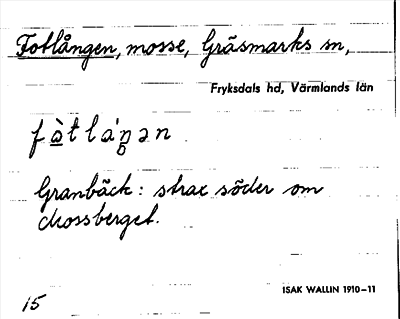 Fotlången, mosse, Gräsmarks sn,
Fryksdals hd, Värmlands län
Granbäck: strax söder om
Mossberget.
ISAK WALLIN 1910-11
15